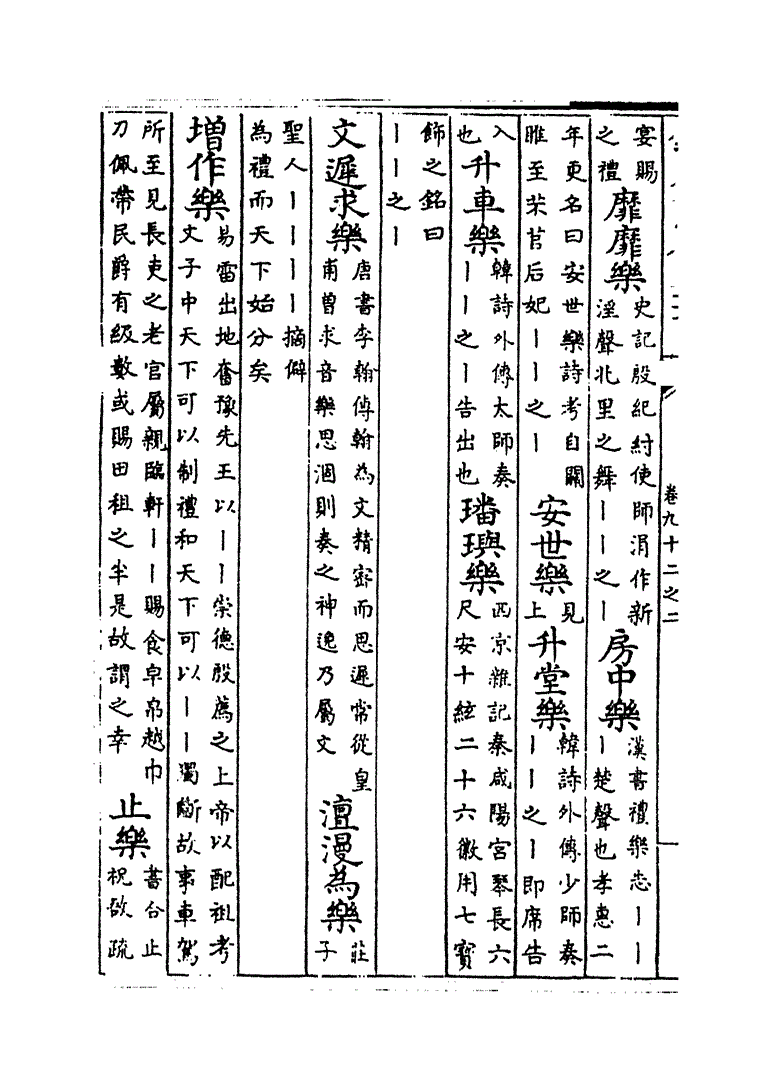 宴賜之禮 靡靡樂 史記殷紀紂使師涓作新淫聲北里之舞丨丨之丨 房中樂 漢書禮樂志丨丨丨楚聲也孝惠二
年更名曰安世樂詩考自關雎至芣苢后妃丨丨之丨 安世樂 見上 升堂樂 韓詩外傳少師奏丨丨之丨即席告
入也 升車樂 韓詩外傳太師奏丨丨之丨告出也 璠璵樂 西京雜記秦咸陽宮琴長六尺安十絃二十六徽用七寶
飾之銘曰丨丨之丨
文遲求樂 唐書李翰傳翰為文精密而思遲常從皇甫曾求音樂思涸則奏之神逸乃屬文 澶漫為樂 莊子
聖人丨丨丨丨摘僻為禮而天下始分矣
增作樂 易雷出地奮豫先王以丨丨崇德殷薦之上帝以配祖考文子中天下可以制禮和天下可以丨丨獨斷故事車駕
所至見長吏之老官屬親臨軒丨丨賜食皁帛越巾刀佩帶民爵有級數或賜田租之半是故謂之幸 止樂 書合止柷敔疏
卷九十二之二